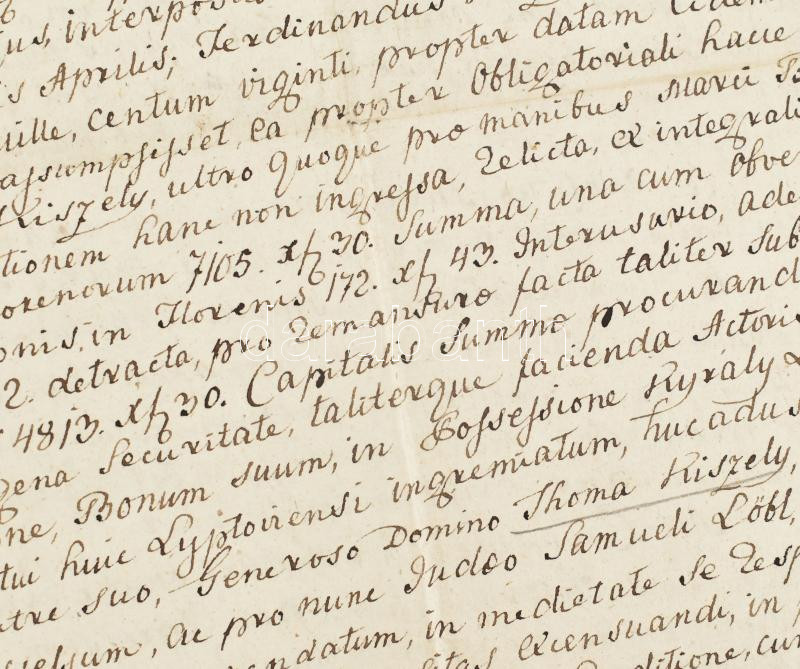 jus, interposi
is Aprilis; Ferdinandus
mille, centum viginti, propter datam
assumpsisset, ea propter Obligatoriali hacce
Kiszely, ultro quoque prae manibus Marci
tionem hanc non ingressa, relicta, ex integrali
orenorum 7105. xf 30. Summa, una cum obve
onis, in Florenis 172. xf 43. Interusurio, ade
2. detracta, pro remansurae facta taliter sub
4813. xf 30. Capitalis Summae procurand
gena Securitate, taliterque facienda Actoris
ne, Bonum suum, in Possessione Kyraly
tui huic Lyptoviensi ingremiatum, hucadus
tre suo, Generoso Domino Thoma Kiszely,
sessum, ac pro nunc Judaeo Samueli Löbl,
endatum, in medietate se resp
litas excensuandi, in
ditione, cum
darabanth